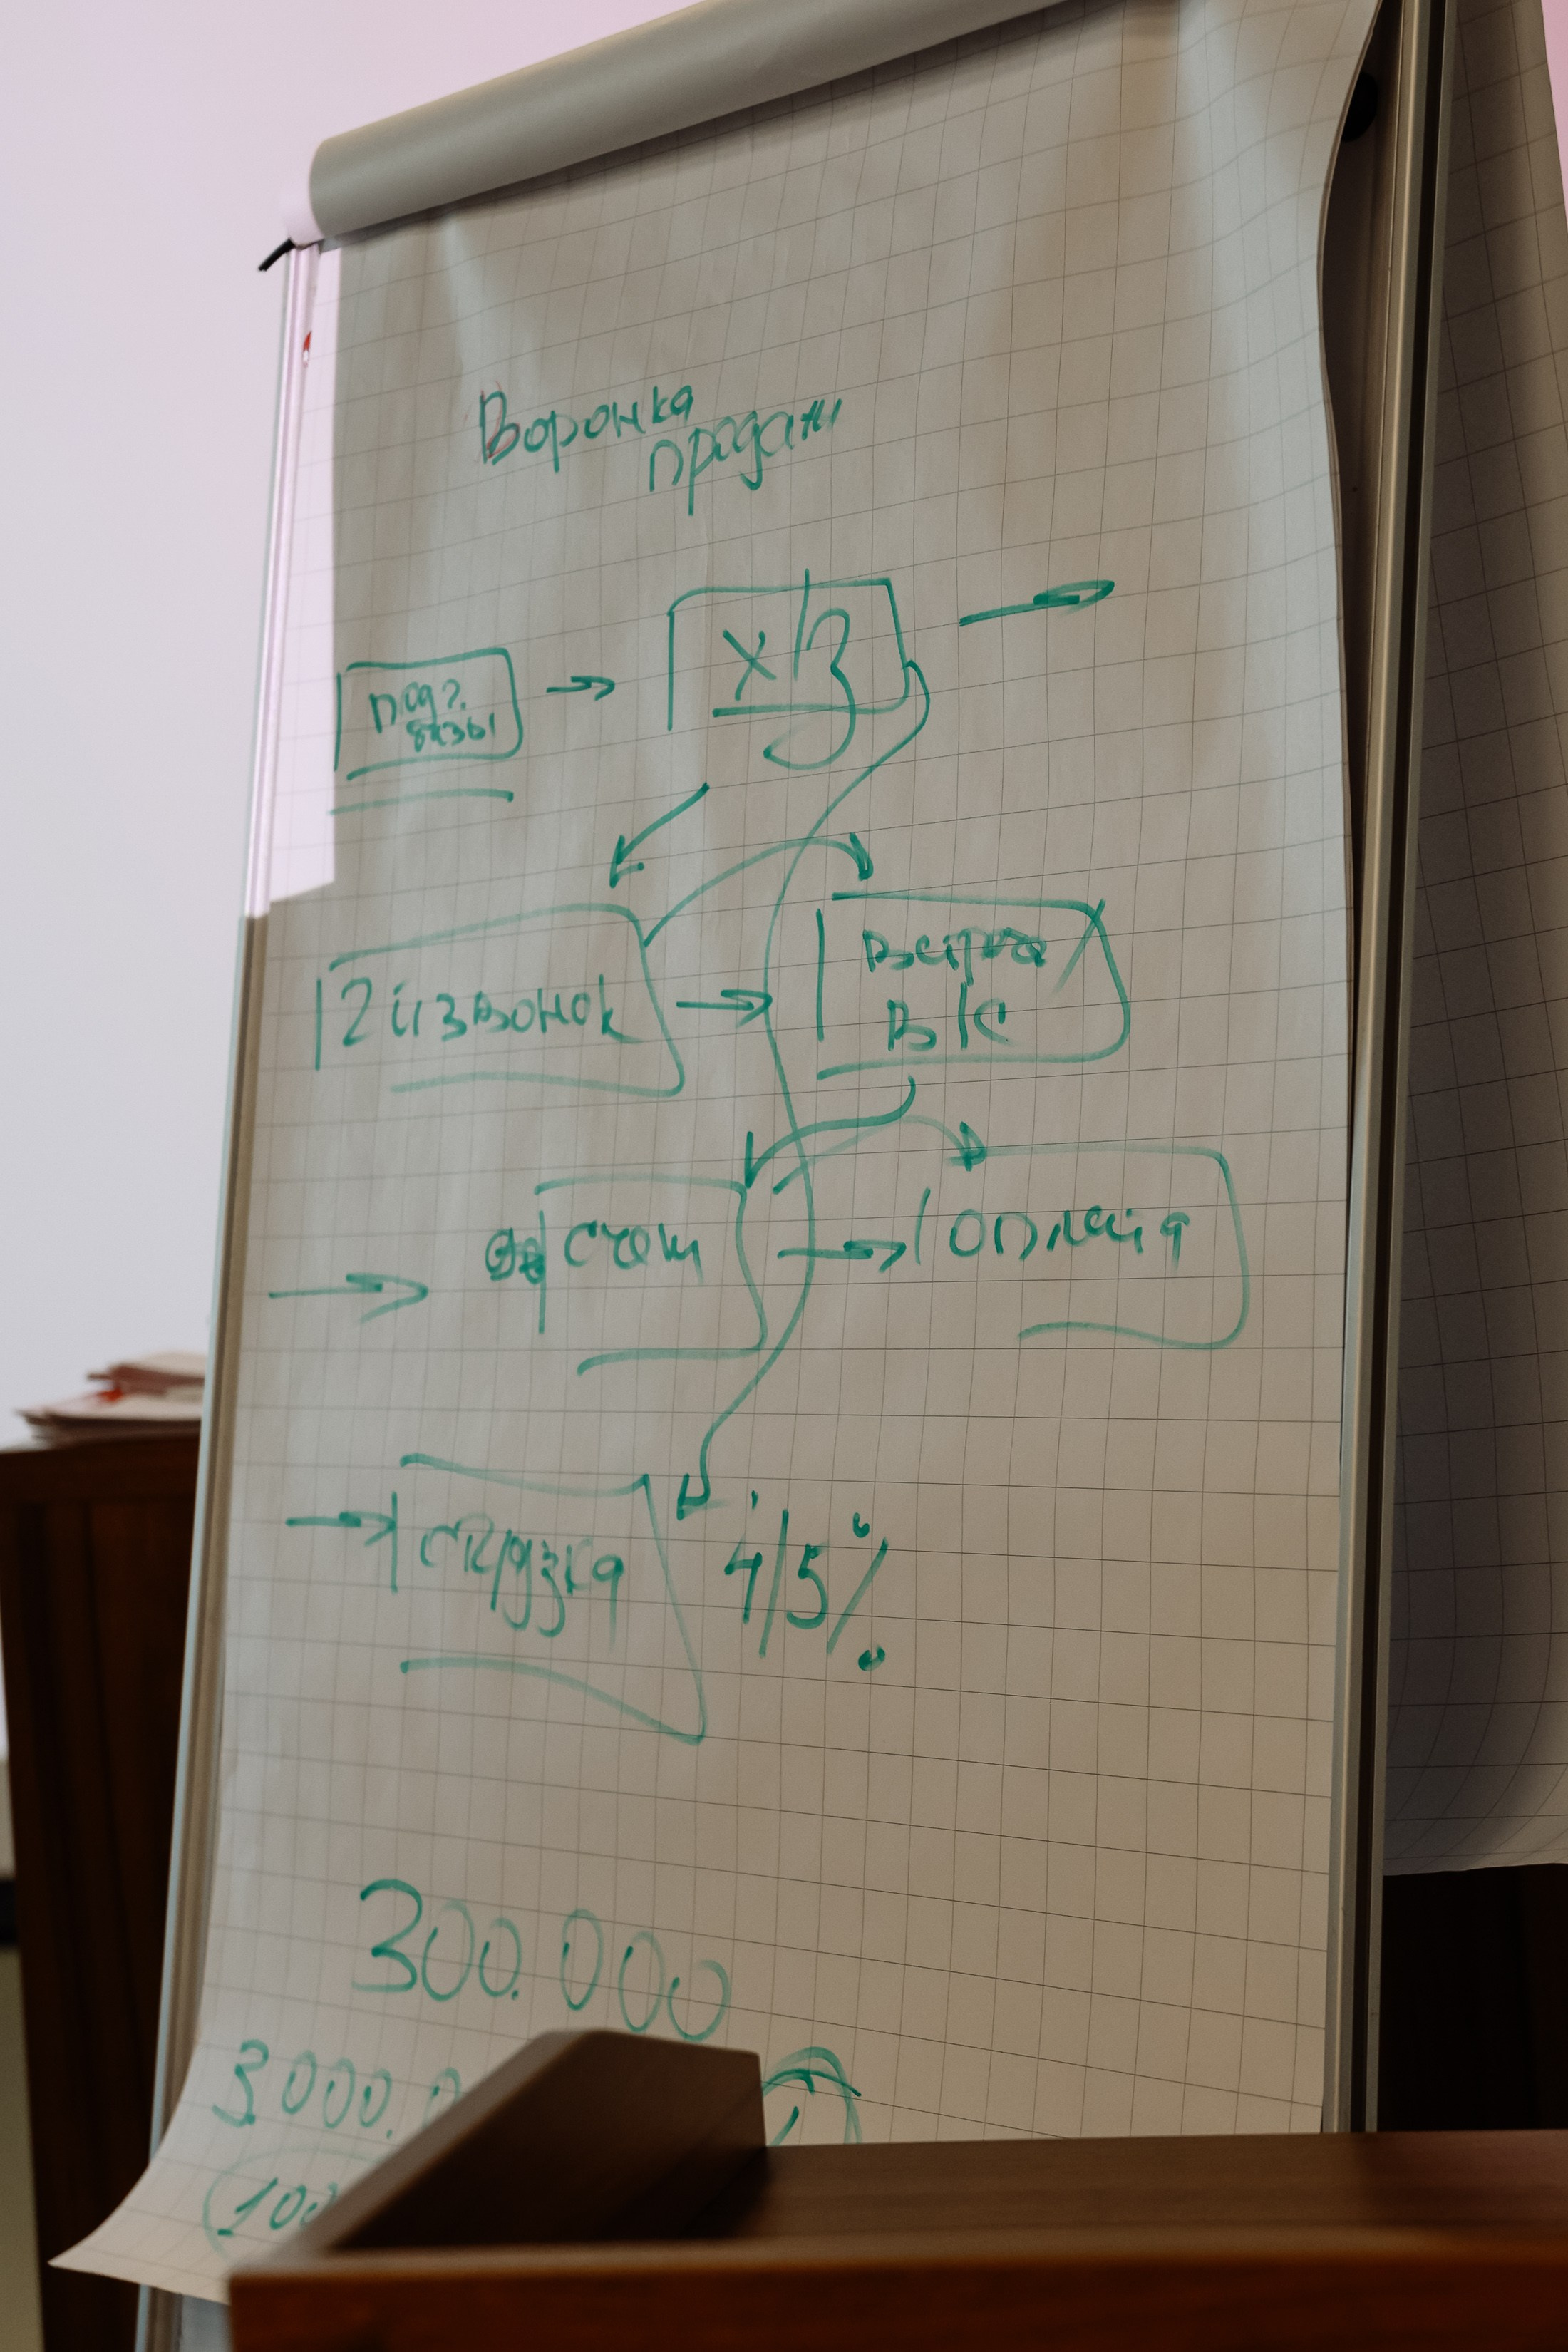 Воронка
продаж
подг.
базы
х/З
2й звонок
Встреча/
ВКС
счет
оплата
отгрузка
4/5%
300.000
3000.0
100